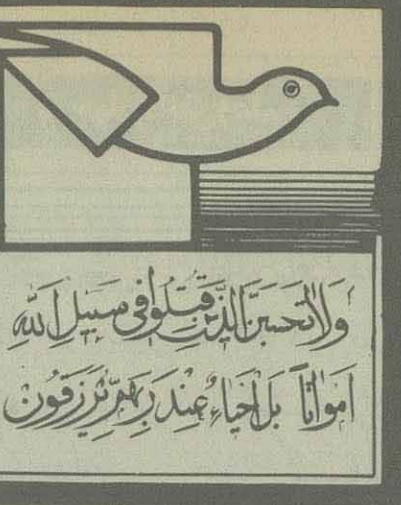 وَلاٰتَحسَبَنَّ الَّذينَ قُتِلُوا فى سَبيلِ اللّهِ
اَمواٰتاً بَل اَحياٰءٌ عِندَ رَبِّهِم يُرزَقُونَ